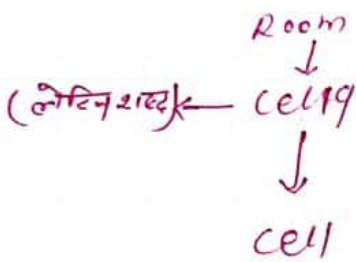 Room
(लेटिन शब्द) ← Cella
cell